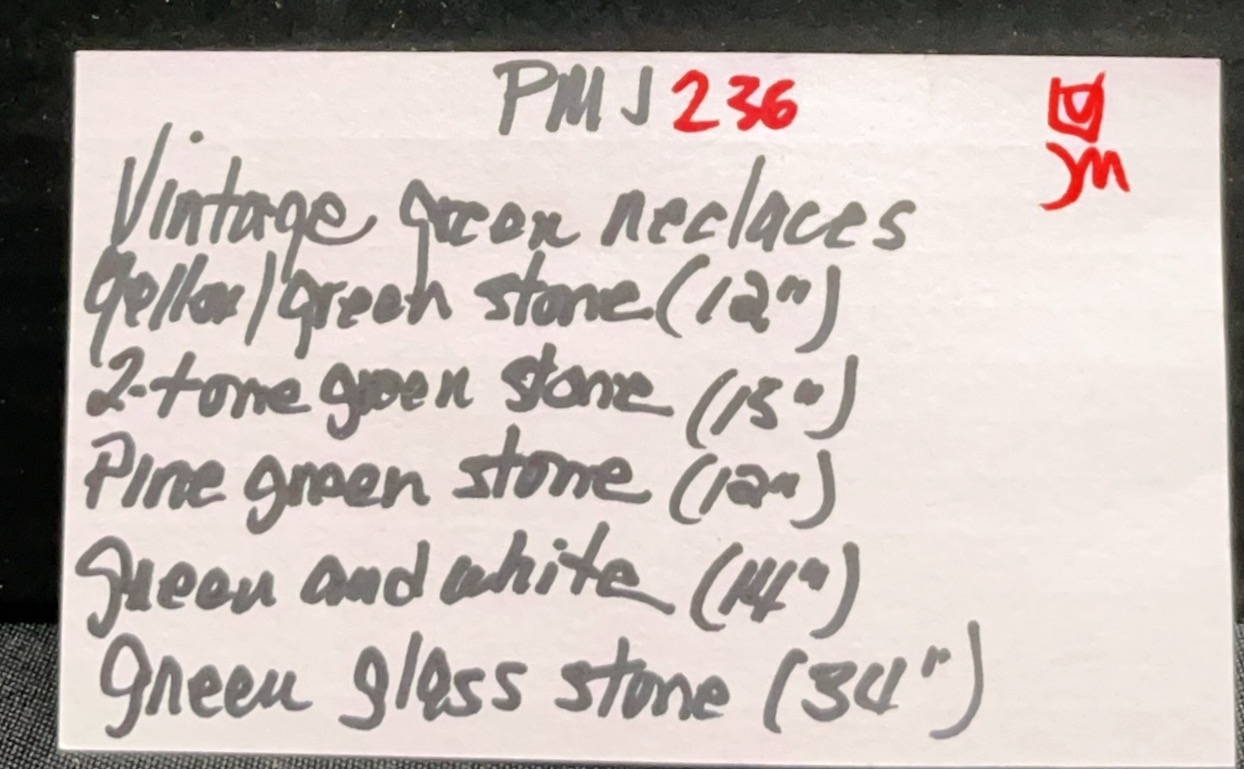 PMJ 236
JM
Vintage green neclaces
Yellow/green stone (12")
2-tone green stone (15")
Pine green stone (12")
Green and white (14")
Green glass stone (34")